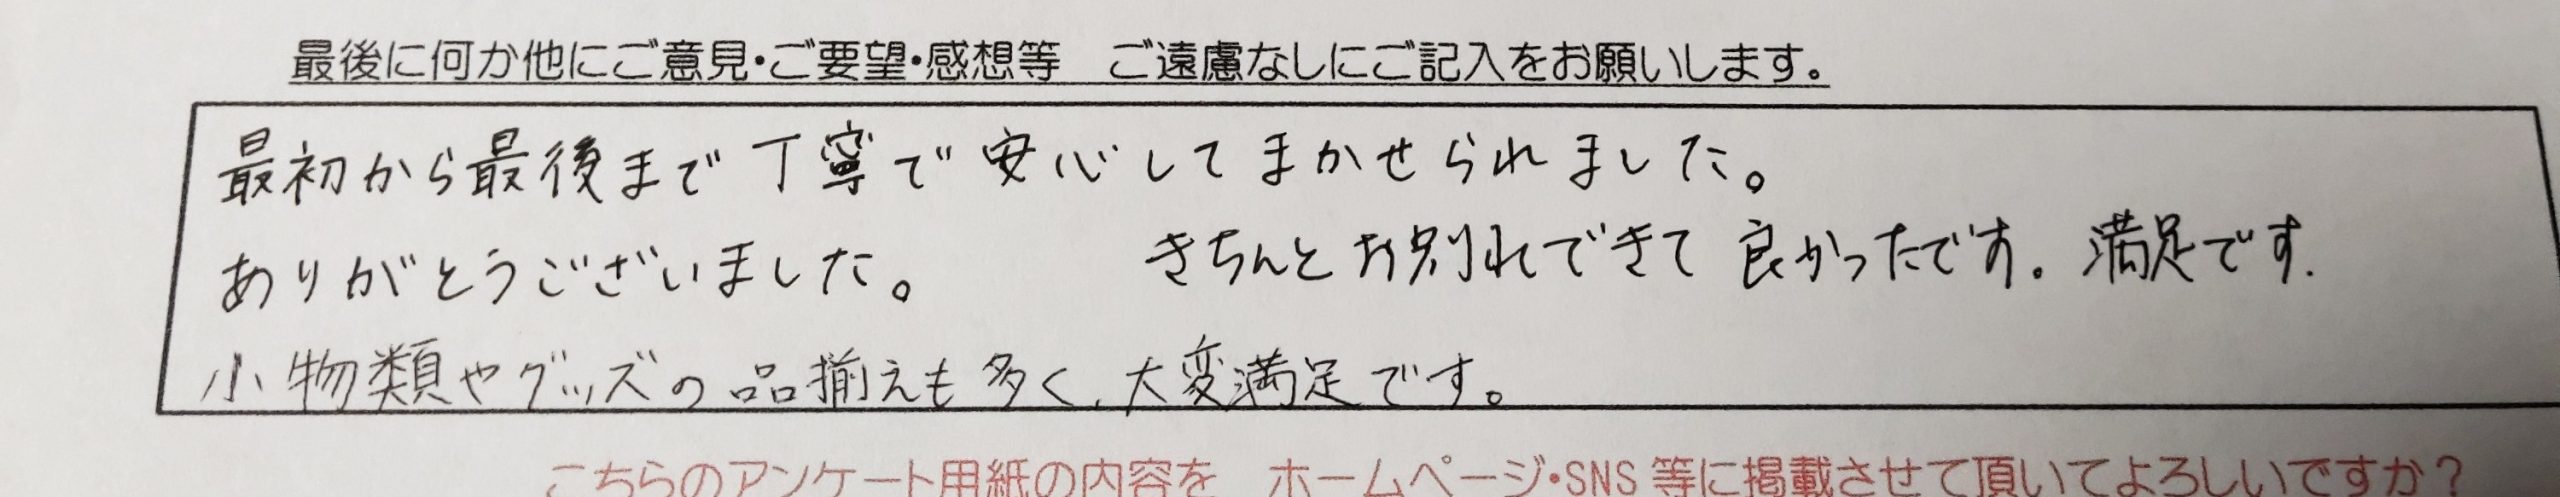 最後に何か他にご意見・ご要望・感想等　ご遠慮なしにご記入をお願いします。
最初から最後まで丁寧で安心してまかせられました。
ありがとうございました。　きちんとお別れできて良かったです。満足です.
小物類やグッズの品揃えも多く、大変満足です。
こちらのアンケート用紙の内容を　ホームページ・SNS等に掲載させて頂いてよろしいですか？